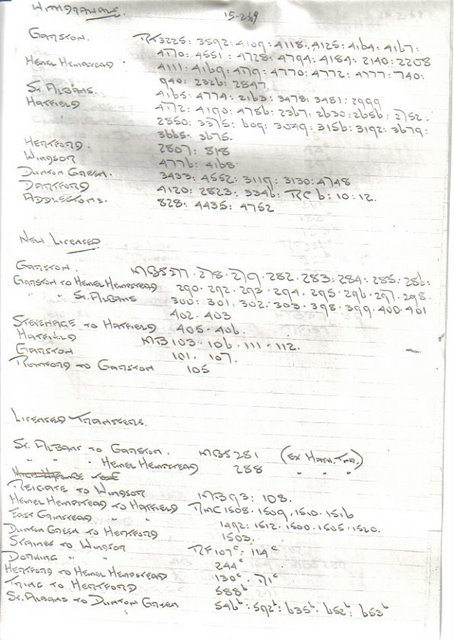 WITHDRAWALS. 15-2-69
GARSTON. RT3225: 3592: 4109: 4118: 4125: 4164: 4167:
4170: 4551: 4728: 4794: 4184: 2140: 2208
HEMEL HEMPSTEAD. 4111: 4169: 4771: 4770: 4772: 4777: 740:
940: 2326: 2847
ST. ALBANS. 4165: 4774: 2163: 3478: 3481: 2999
HATFIELD 4772: 4190: 4756: 2367: 2630: 2656: 2752.
2550: 3375: 609: 3099: 3156: 3192: 3679:
3665: 3675.
HERTFORD 2807: 818
WINDSOR 4776: 4168
DUNTON GREEN. 3433: 4552: 3119: 3130: 4748
DARTFORD 4120: 2823: 3346: RC 6: 10: 12.
ADDLESTONE. 828: 4435: 4752
NEW LICENSED
GARSTON. MBS277. 278. 279. 282. 283: 284. 285. 286.
GARSTON TO HEMEL HEMPSTEAD 290. 292. 293. 294. 295. 296. 297. 298.
" " ST. ALBANS 300: 301. 302. 303. 398. 399. 400. 401
402. 403
STEVENAGE TO HATFIELD 405. 406.
HATFIELD MB 103. 106. 111. 112.
GARSTON 101. 107.
ROMFORD TO GARSTON 105
LICENSED TRANSFERS.
ST. ALBANS TO GARSTON. MBS281 (EX HATF. TNG.)
" " " HEMEL HEMPSTEAD 288 " "
REIGATE TO WINDSOR MB93: 108.
HEMEL HEMPSTEAD TO HATFIELD RMC 1508. 1509. 1510. 1516
EAST GRINSTEAD " " 1492. 1512. 1500. 1505. 1520.
DUNTON GREEN TO HERTFORD 1503.
STAINES TO WINDSOR RF107c: 114c
DORKING " " 244c
HERTFORD TO HEMEL HEMPSTEAD 130c. 71c
TRING TO HERTFORD 588b
ST. ALBANS TO DUNTON GREEN 546b: 592b: 635b: 652b: 653b